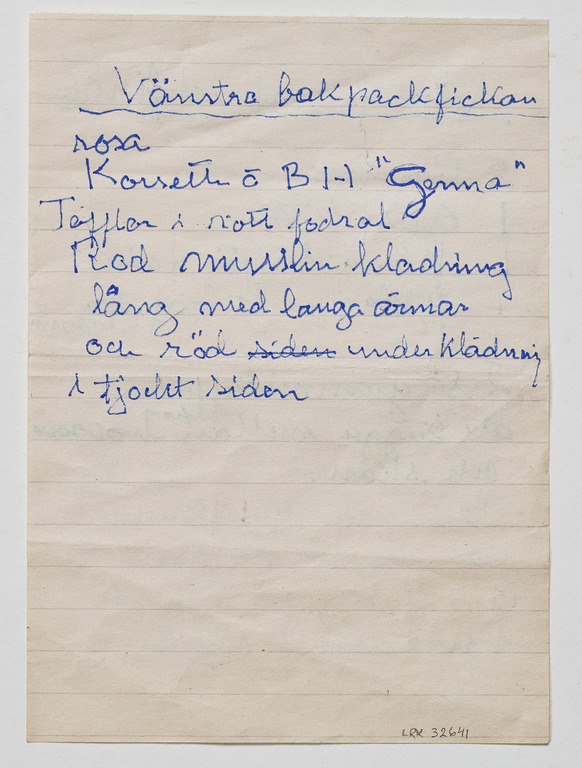 Vänstra bakpackfickan
rosa
Korsett o BH "Gerna"
Tofflor i rött fodral
Röd musslin kladning
lång med langa ärmar
och röd siden underklädning
i tjockt siden
LRK 32641